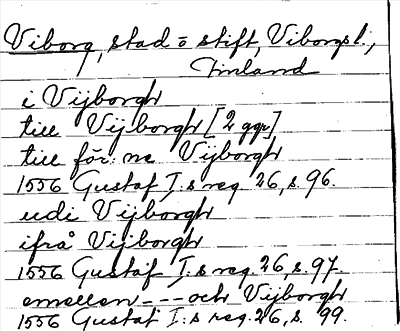 Viborg, stad o stift, Viborgs l.,
Finland
i Vijborgh
till Vijborgh [2 ggr]
till för:ne Vijborgh
1556 Gustaf I:s reg. 26, s. 96.
udi Vijborgh
ifrå Vijborgh
1556 Gustaf I:s reg. 26, s. 97.
emellen - - - och Vijborgh
1556 Gustaf I:s reg. 26, s. 99.